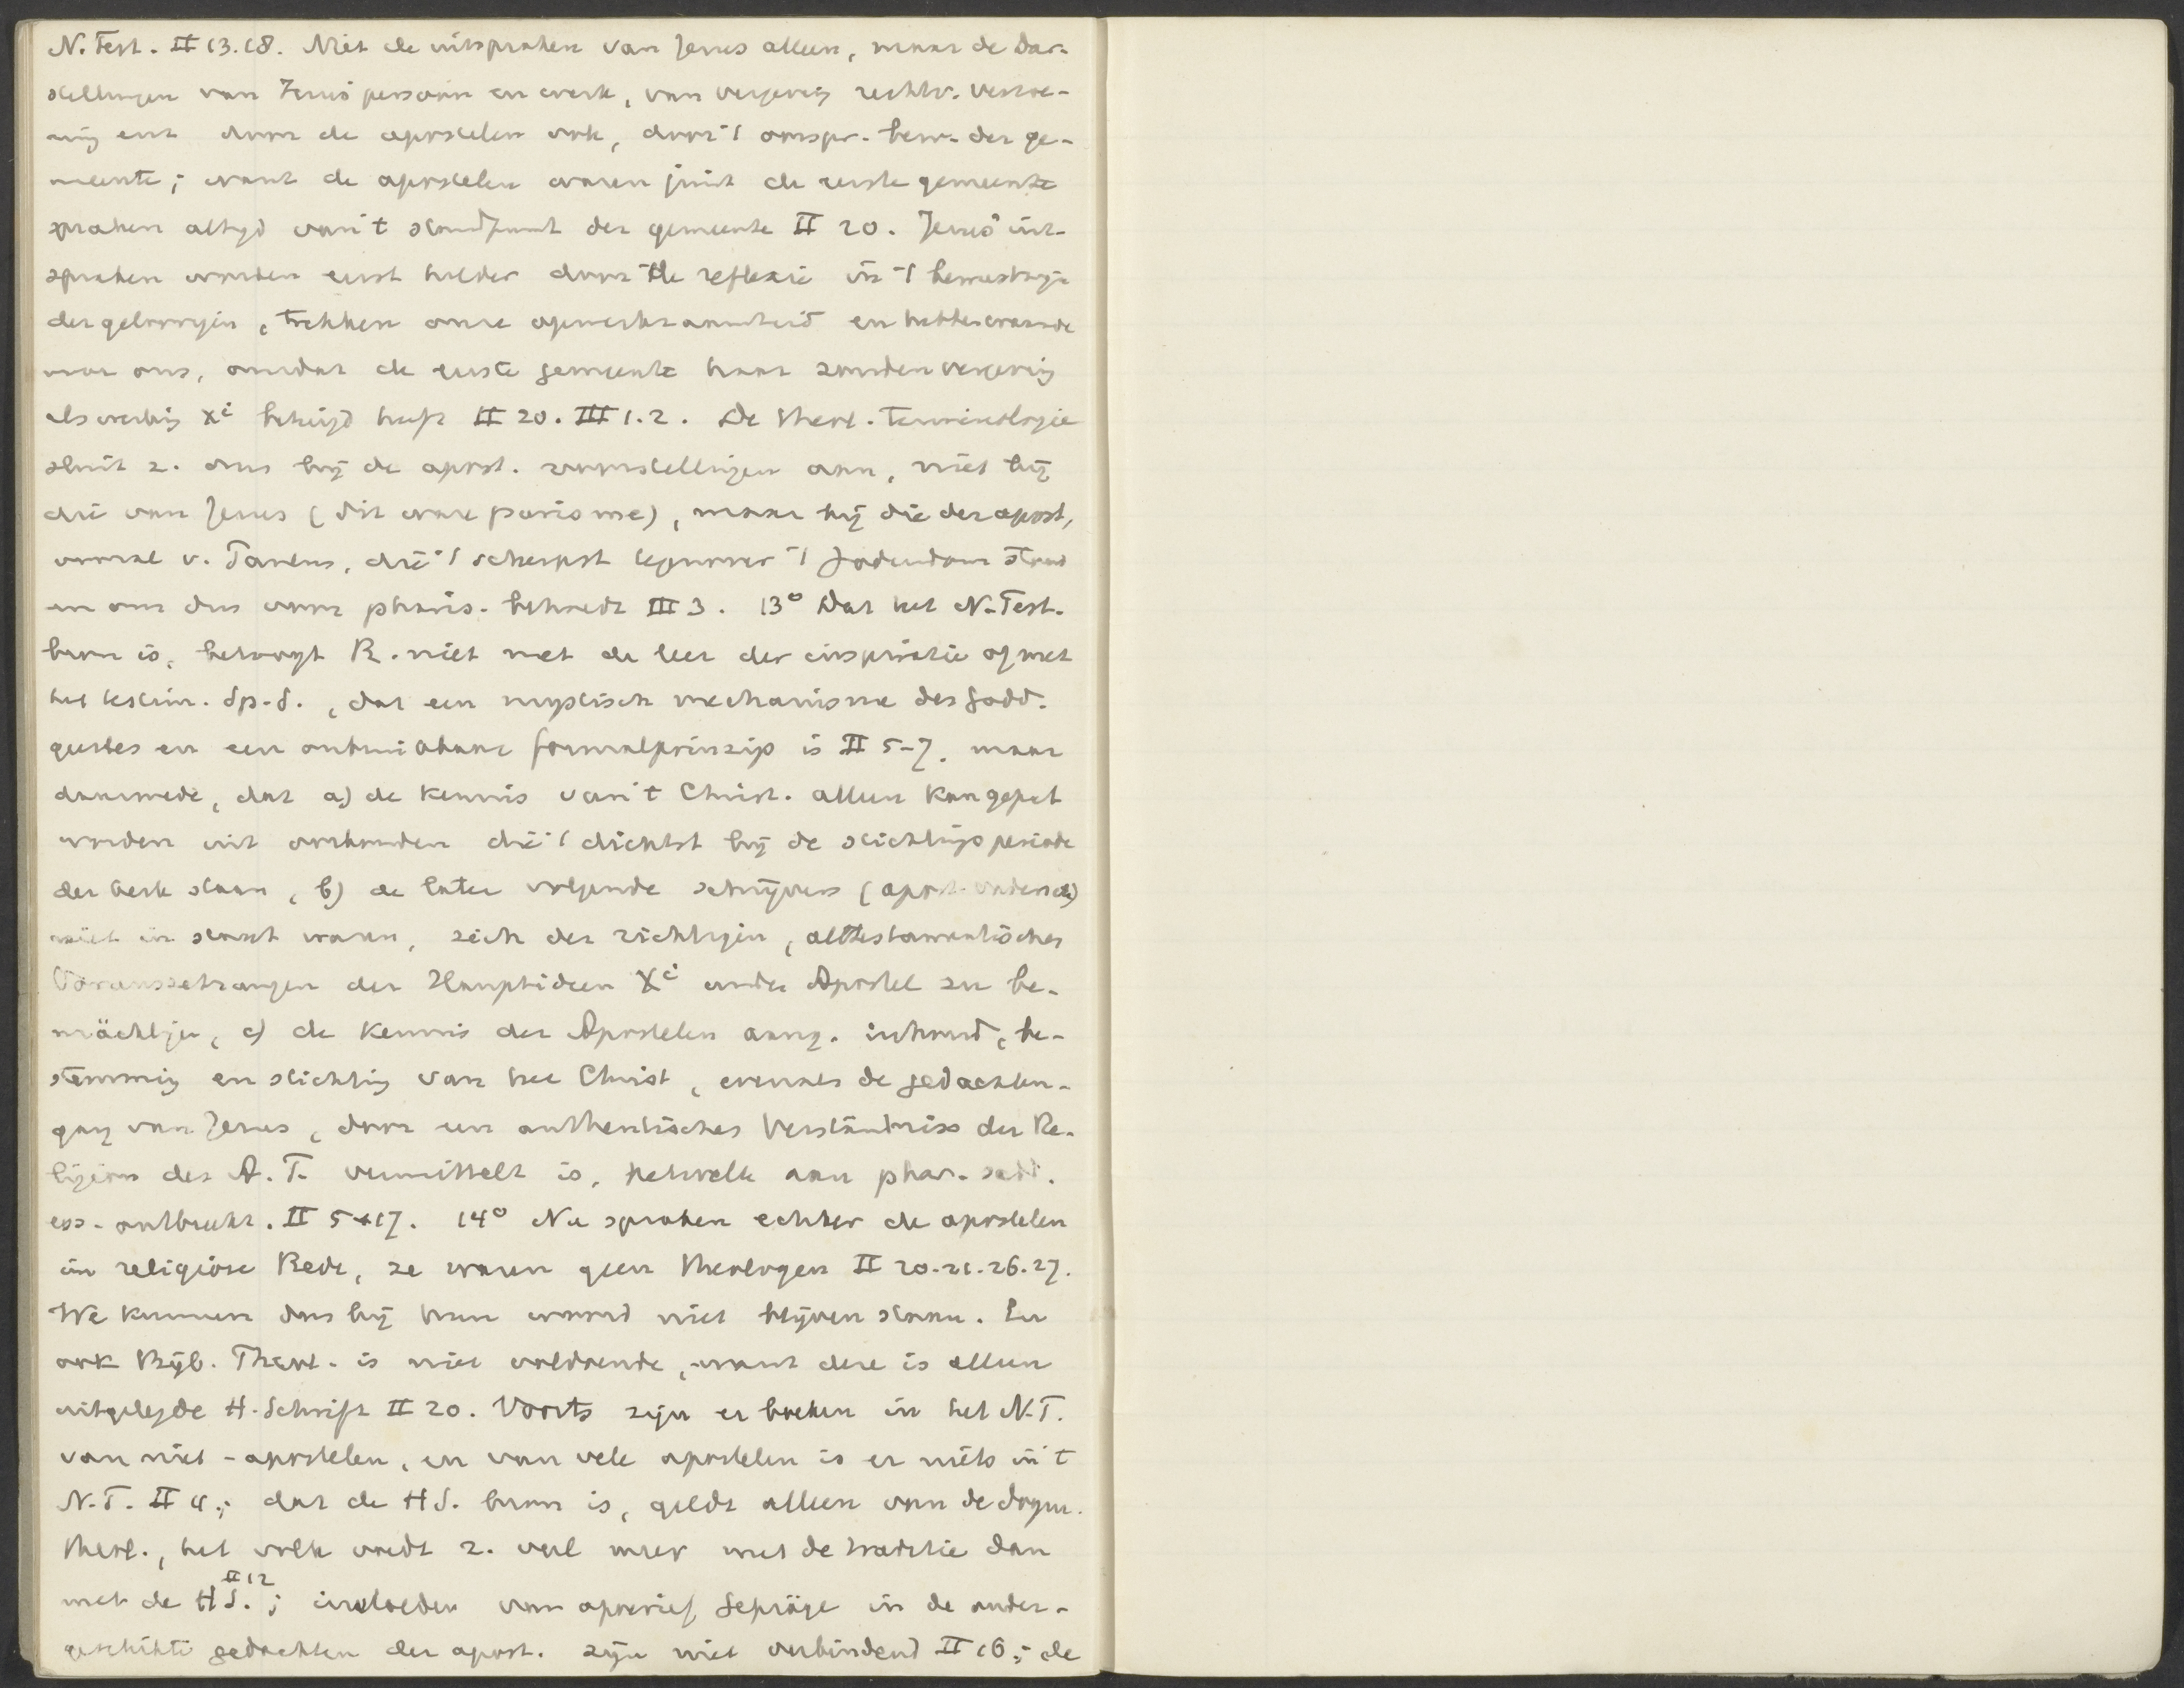 N. Test. II 13.18. Niet de uitspraken van Jezus alleen, maar de Dar-
stellungen van Jezus persoon en werk, van vergeving rechtv. verzoe-
ning enz door de apostelen ook, door 't oorspr. bew. der ge-
meente; want de apostelen waren juist de eerste gemeente
spraken altyd van 't standpunt der gemeente II 20. Jezus' uit-
spraken worden eerst helder door de reflexie in 't bewustzyn
der geloovigen, trekken onze opmerkzaamheid en hebben waarde
voor ons, omdat de eerste gemeente haar zondenvergeving
als werking Xi betuigd heeft II 20. III 1.2. De theol. terminologie
sluit z. dus bij de apost. voorstellingen aan, niet bij
die van Jezus (dit ware purisme), maar bij die der apost,
vooral v. Paulus, die 't scherpst tegenover 't Jodendom stond
en ons dus voor pharis. behoedt III 3. 13° Dat het N. Test.
bron is, betoogt R. niet met de leer der inspiratie of met
het testim. Sp. S., dat een mystisch mechanisme des godd.
geestes en een onbruikbaar formalprinzip is II 5-7. maar
daarmede, dat a) de kennis van 't Christ. alleen kan geput
worden uit oorkonden die 't dichtst bij de stichtingsperiode
der kerk staan, b) de later volgende schrijvers (apost. vaders etc)
niet in staat waren, sich der richtigen, alttestamentischen
Voraussetzungen der Hauptideen Xi und der Apostel zu be-
mächtigen, c) de kennis der Apostelen aang. inhoud, be-
stemming en stichting van het Christ, evenals de gedachten-
gang van Jezus, door een authentisches Verständniss der Re-
ligion des A. T. vermittelt is, hetwelk aan phar. sadd.
ess. ontbreekt. II 5-17. 14° Nu spraken echter de apostelen
in religiöse Rede, ze waren geen theologen II 20-21.26.27.
We kunnen dus bij hun woord niet blijven staan. En
ook Bijb. Theol. is niet voldoende, want deze is alleen
uitgelegde H. Schrift II 20. Voorts zijn er boeken in het N.T.
van niet-apostelen, en van vele apostelen is er niets in 't
N. T. II 4.; dat de HS. bron is, geldt alleen van de dogm.
theol., het volk voedt z. veel meer met de traditie dan
met de HS. II 12; invloeden van apocrief Gepräge in de onder-
geschikte gedachten der apost. zijn niet verbindend II 16.; de